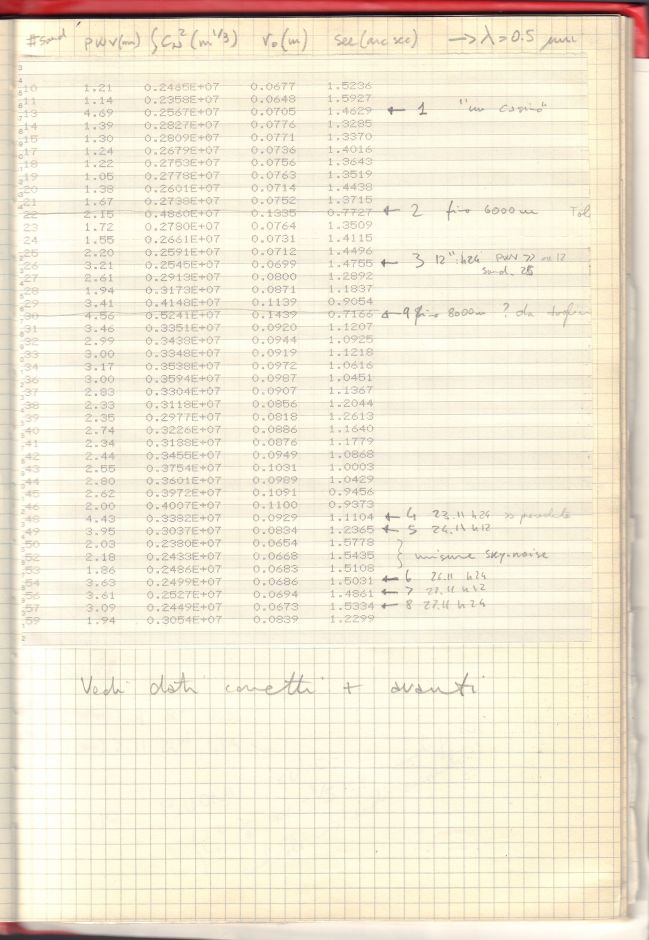 #sond PWV(mm) ∫CN²(m^1/3) r₀(m) see(arcsec) → λ=0.5 μm
10 1.21 0.2465E+07 0.0677 1.5236
11 1.14 0.2358E+07 0.0648 1.5927
13 4.69 0.2567E+07 0.0705 1.4629 ← 1 "un casino"
14 1.39 0.2827E+07 0.0776 1.3285
15 1.30 0.2809E+07 0.0771 1.3370
17 1.24 0.2679E+07 0.0736 1.4016
18 1.22 0.2753E+07 0.0756 1.3643
19 1.05 0.2778E+07 0.0763 1.3519
20 1.38 0.2601E+07 0.0714 1.4438
21 1.67 0.2738E+07 0.0752 1.3715
22 2.15 0.4860E+07 0.1335 0.7727 ← 2 fino 6000m
23 1.72 0.2780E+07 0.0764 1.3509
24 1.55 0.2661E+07 0.0731 1.4115
25 2.20 0.2591E+07 0.0712 1.4496
26 3.21 0.2545E+07 0.0699 1.4755 ← 3 12" h24 PWV >>
27 2.61 0.2913E+07 0.0800 1.2892
28 1.94 0.3173E+07 0.0871 1.1837
29 3.41 0.4148E+07 0.1139 0.9054
30 4.56 0.5241E+07 0.1439 0.7166 ← 9 fino 8000m ? da
31 3.46 0.3351E+07 0.0920 1.1207
32 2.99 0.3438E+07 0.0944 1.0925
33 3.00 0.3348E+07 0.0919 1.1218
34 3.17 0.3538E+07 0.0972 1.0616
36 3.00 0.3594E+07 0.0987 1.0451
37 2.83 0.3304E+07 0.0907 1.1367
38 2.33 0.3118E+07 0.0856 1.2044
39 2.35 0.2977E+07 0.0818 1.2613
40 2.74 0.3226E+07 0.0886 1.1640
41 2.34 0.3188E+07 0.0876 1.1779
42 2.44 0.3455E+07 0.0949 1.0868
43 2.55 0.3754E+07 0.1031 1.0003
44 2.80 0.3601E+07 0.0989 1.0429
45 2.62 0.3972E+07 0.1091 0.9456
46 2.00 0.4007E+07 0.1100 0.9373
48 4.43 0.3382E+07 0.0929 1.1104 ← 4 23.11 h24
49 3.95 0.3037E+07 0.0834 1.2365 ← 5 24.11 h12
50 2.03 0.2380E+07 0.0654 1.5778
52 2.18 0.2433E+07 0.0668 1.5435 } misure sky-noise
53 1.86 0.2486E+07 0.0683 1.5108
54 3.63 0.2499E+07 0.0686 1.5031 ← 6 26.11 h24
56 3.61 0.2527E+07 0.0694 1.4861 ← 7 27.11 h12
57 3.09 0.2449E+07 0.0673 1.5334 ← 8 27.11 h24
59 1.94 0.3054E+07 0.0839 1.2299
Vedi dati corretti + avanti